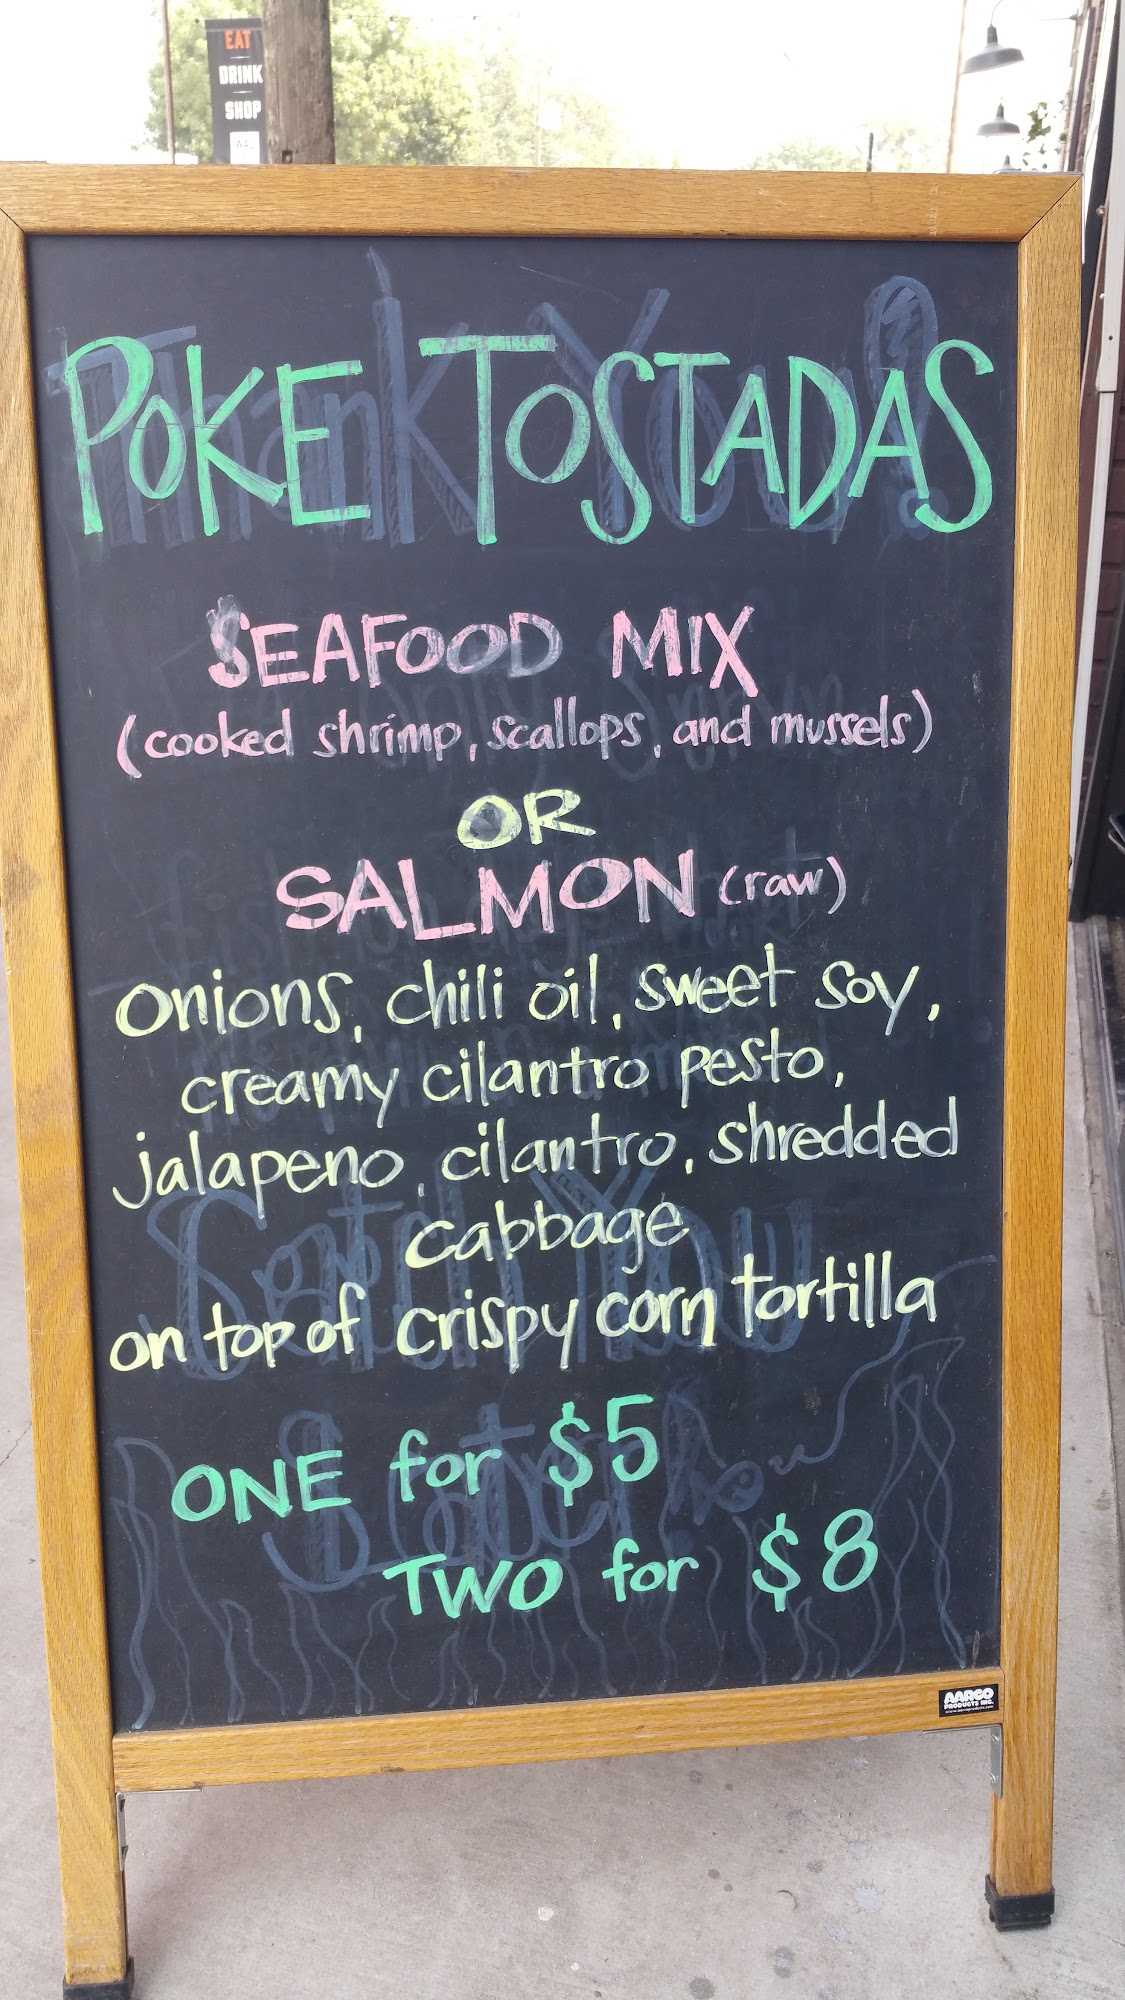 EAT
DRINK
SHOP
POKE TOSTADAS
SEAFOOD MIX
(cooked shrimp, scallops, and mussels)
OR
SALMON (raw)
onions, chili oil, sweet soy,
creamy cilantro pesto,
jalapeno, cilantro, shredded
cabbage
on top of crispy corn tortilla
ONE for $5
TWO for $8
AARCO
PRODUCTS INC.